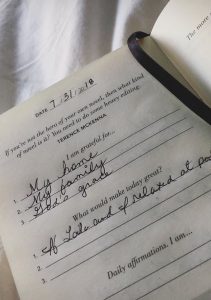 The more
DATE 7/31/2018
If you're not the hero of your own novel, then what kind
of novel is it? You need to do some heavy editing.
TERENCE MCKENNA
I am grateful for...
1. My home
2. My family
3. God's grace
What would make today great?
1. If Lola and I relaxed at
2.
3.
Daily affirmations. I am...